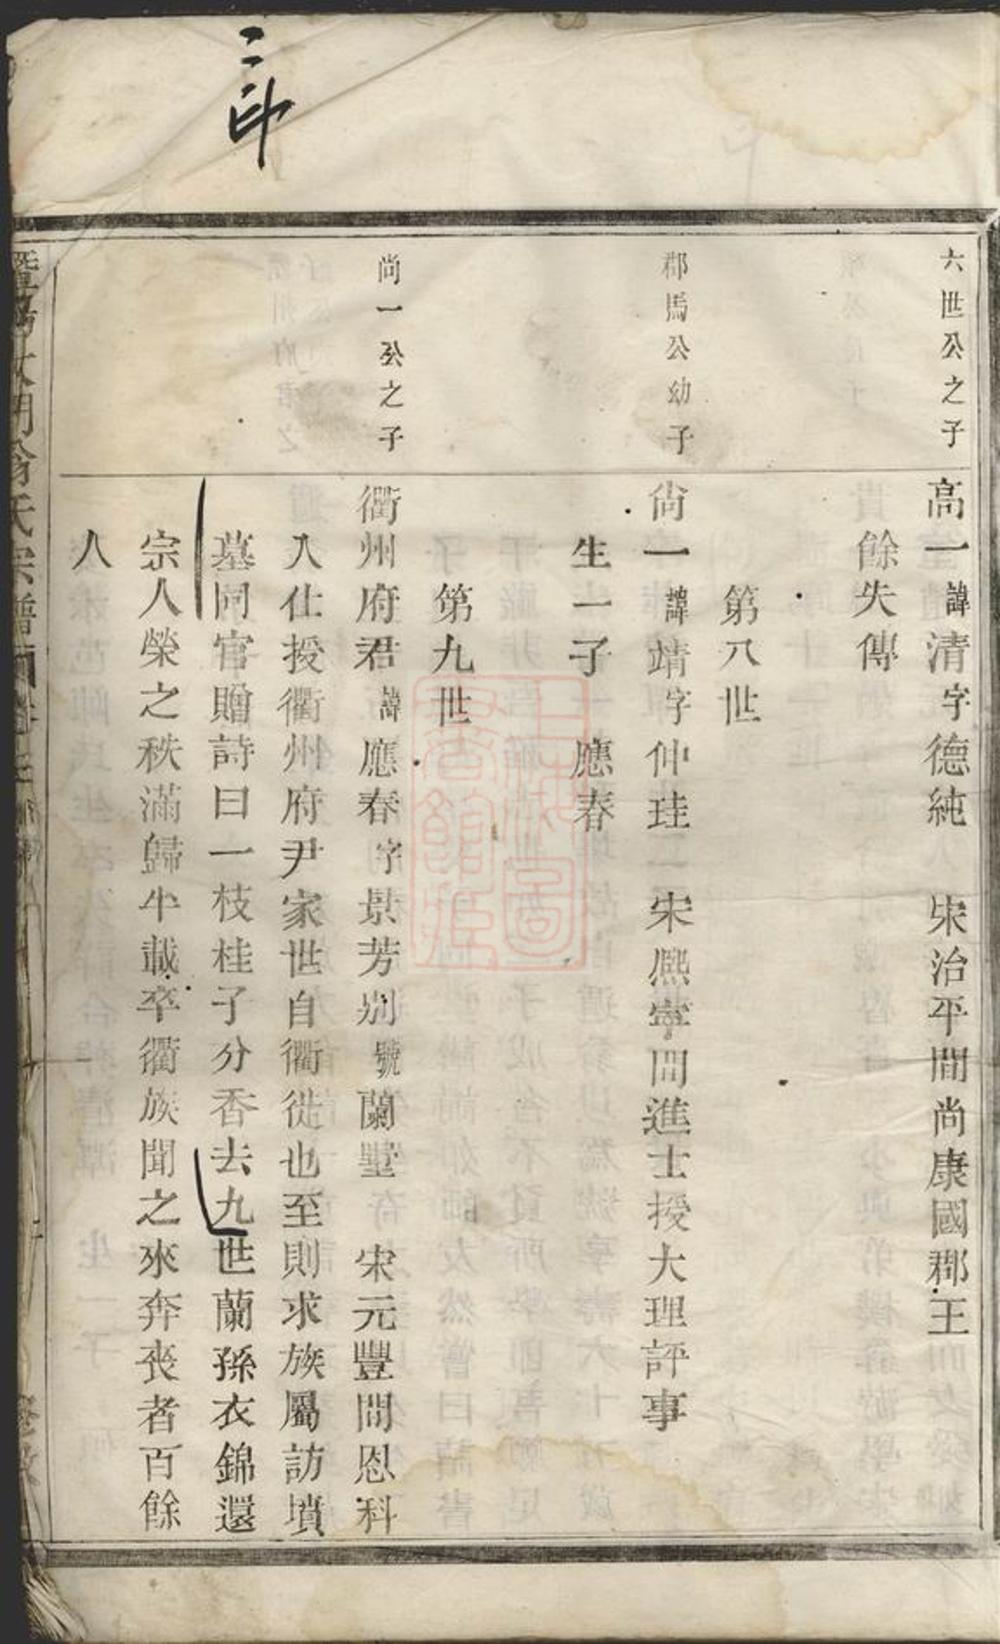 二印
六世公之子
高一諱清字德純　宋治平間尚康國郡王
餘失傳
第八世
郡馬公幼子
尙一諱靖字仲珪　宋熈寧間進士授大理評事
生一子　應春
第九世
尚一公之子
衢州府君諱應春字景芳别號蘭墅　宋元豐間恩科
入仕授衢州府尹家世自衢徙也至則求族屬訪墳
墓同官贈詩曰一枝桂子分香去九世蘭孫衣錦還
宗人榮之秩滿歸半載卒衢族聞之來奔喪者百餘
人
上海圖書館藏